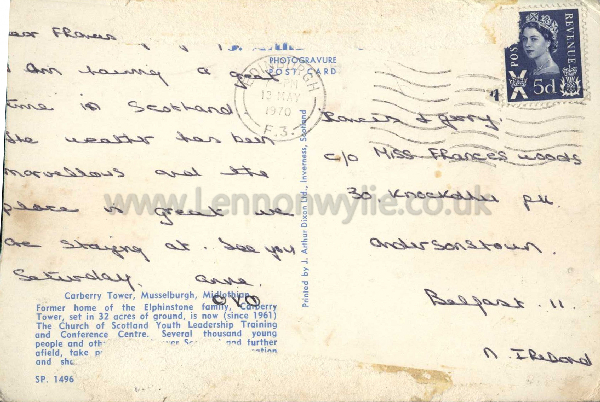 ear Frances
I Am having a great
time in Scotland
The weather has been
marvellous and the
place is great we
are staying at. See you
Saturday. Anne.
OXO
Carberry Tower, Musselburgh, Midlothian
Former home of the Elphinstone family, Carberry
Tower, set in 32 acres of ground, is now (since 1961)
The Church of Scotland Youth Leadership Training
and Conference Centre. Several thousand young
people and oth over Sc and further
afield, take p
and sh
SP. 1496
PHOTOGRAVURE
POST CARD
Printed by J. Arthur Dixon Ltd., Inverness, Scotland
EDINBURGH
PM
13 MAY
1970
F.3.
POSTAGE
REVENUE
5d
Francis & gerry.
c/o Miss Frances woods
30 Knockdhu pk.
Andersonstown.
Belfast. 11.
N. Ireland
www.Lennonwylie.co.uk